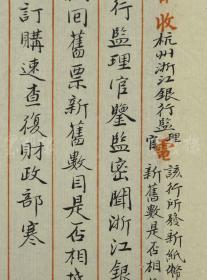 收杭州浙江銀行監理官電
該行所發新紙幣
新舊數是否相
行監理官鑒監密聞浙江銀
回舊票新舊數目是否相
訂購速查復財政部寒